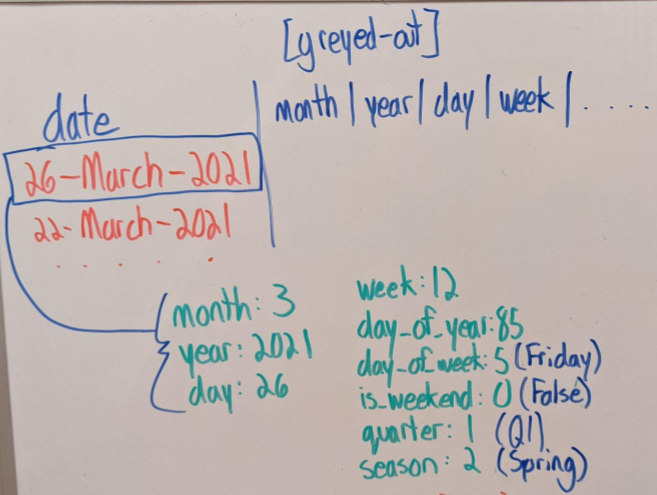 [greyed-out]
date
month | year | day | week | . . . .
26-March-2021
22-March-2021
. . . . .
month: 3
year: 2021
day: 26
week: 12
day_of_year: 85
day_of_week: 5 (Friday)
is_weekend: 0 (False)
quarter: 1 (Q1)
season: 2 (Spring)